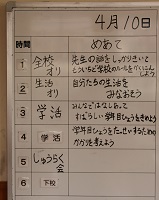 4月10日
時間 めあて
1 全校オリ 先生の話をしっかりきいて
こういちど学校のルールをかくにん
しよう
2 生活オリ 自分たちの生活を
みなおそう
3 学活 みんなではなしあって
すばらしい学年目ひょうをきめよう
4 学活 学年目ひょうをたっせいするための
かかりを考えよう
5 しゅうらく会
6 下校